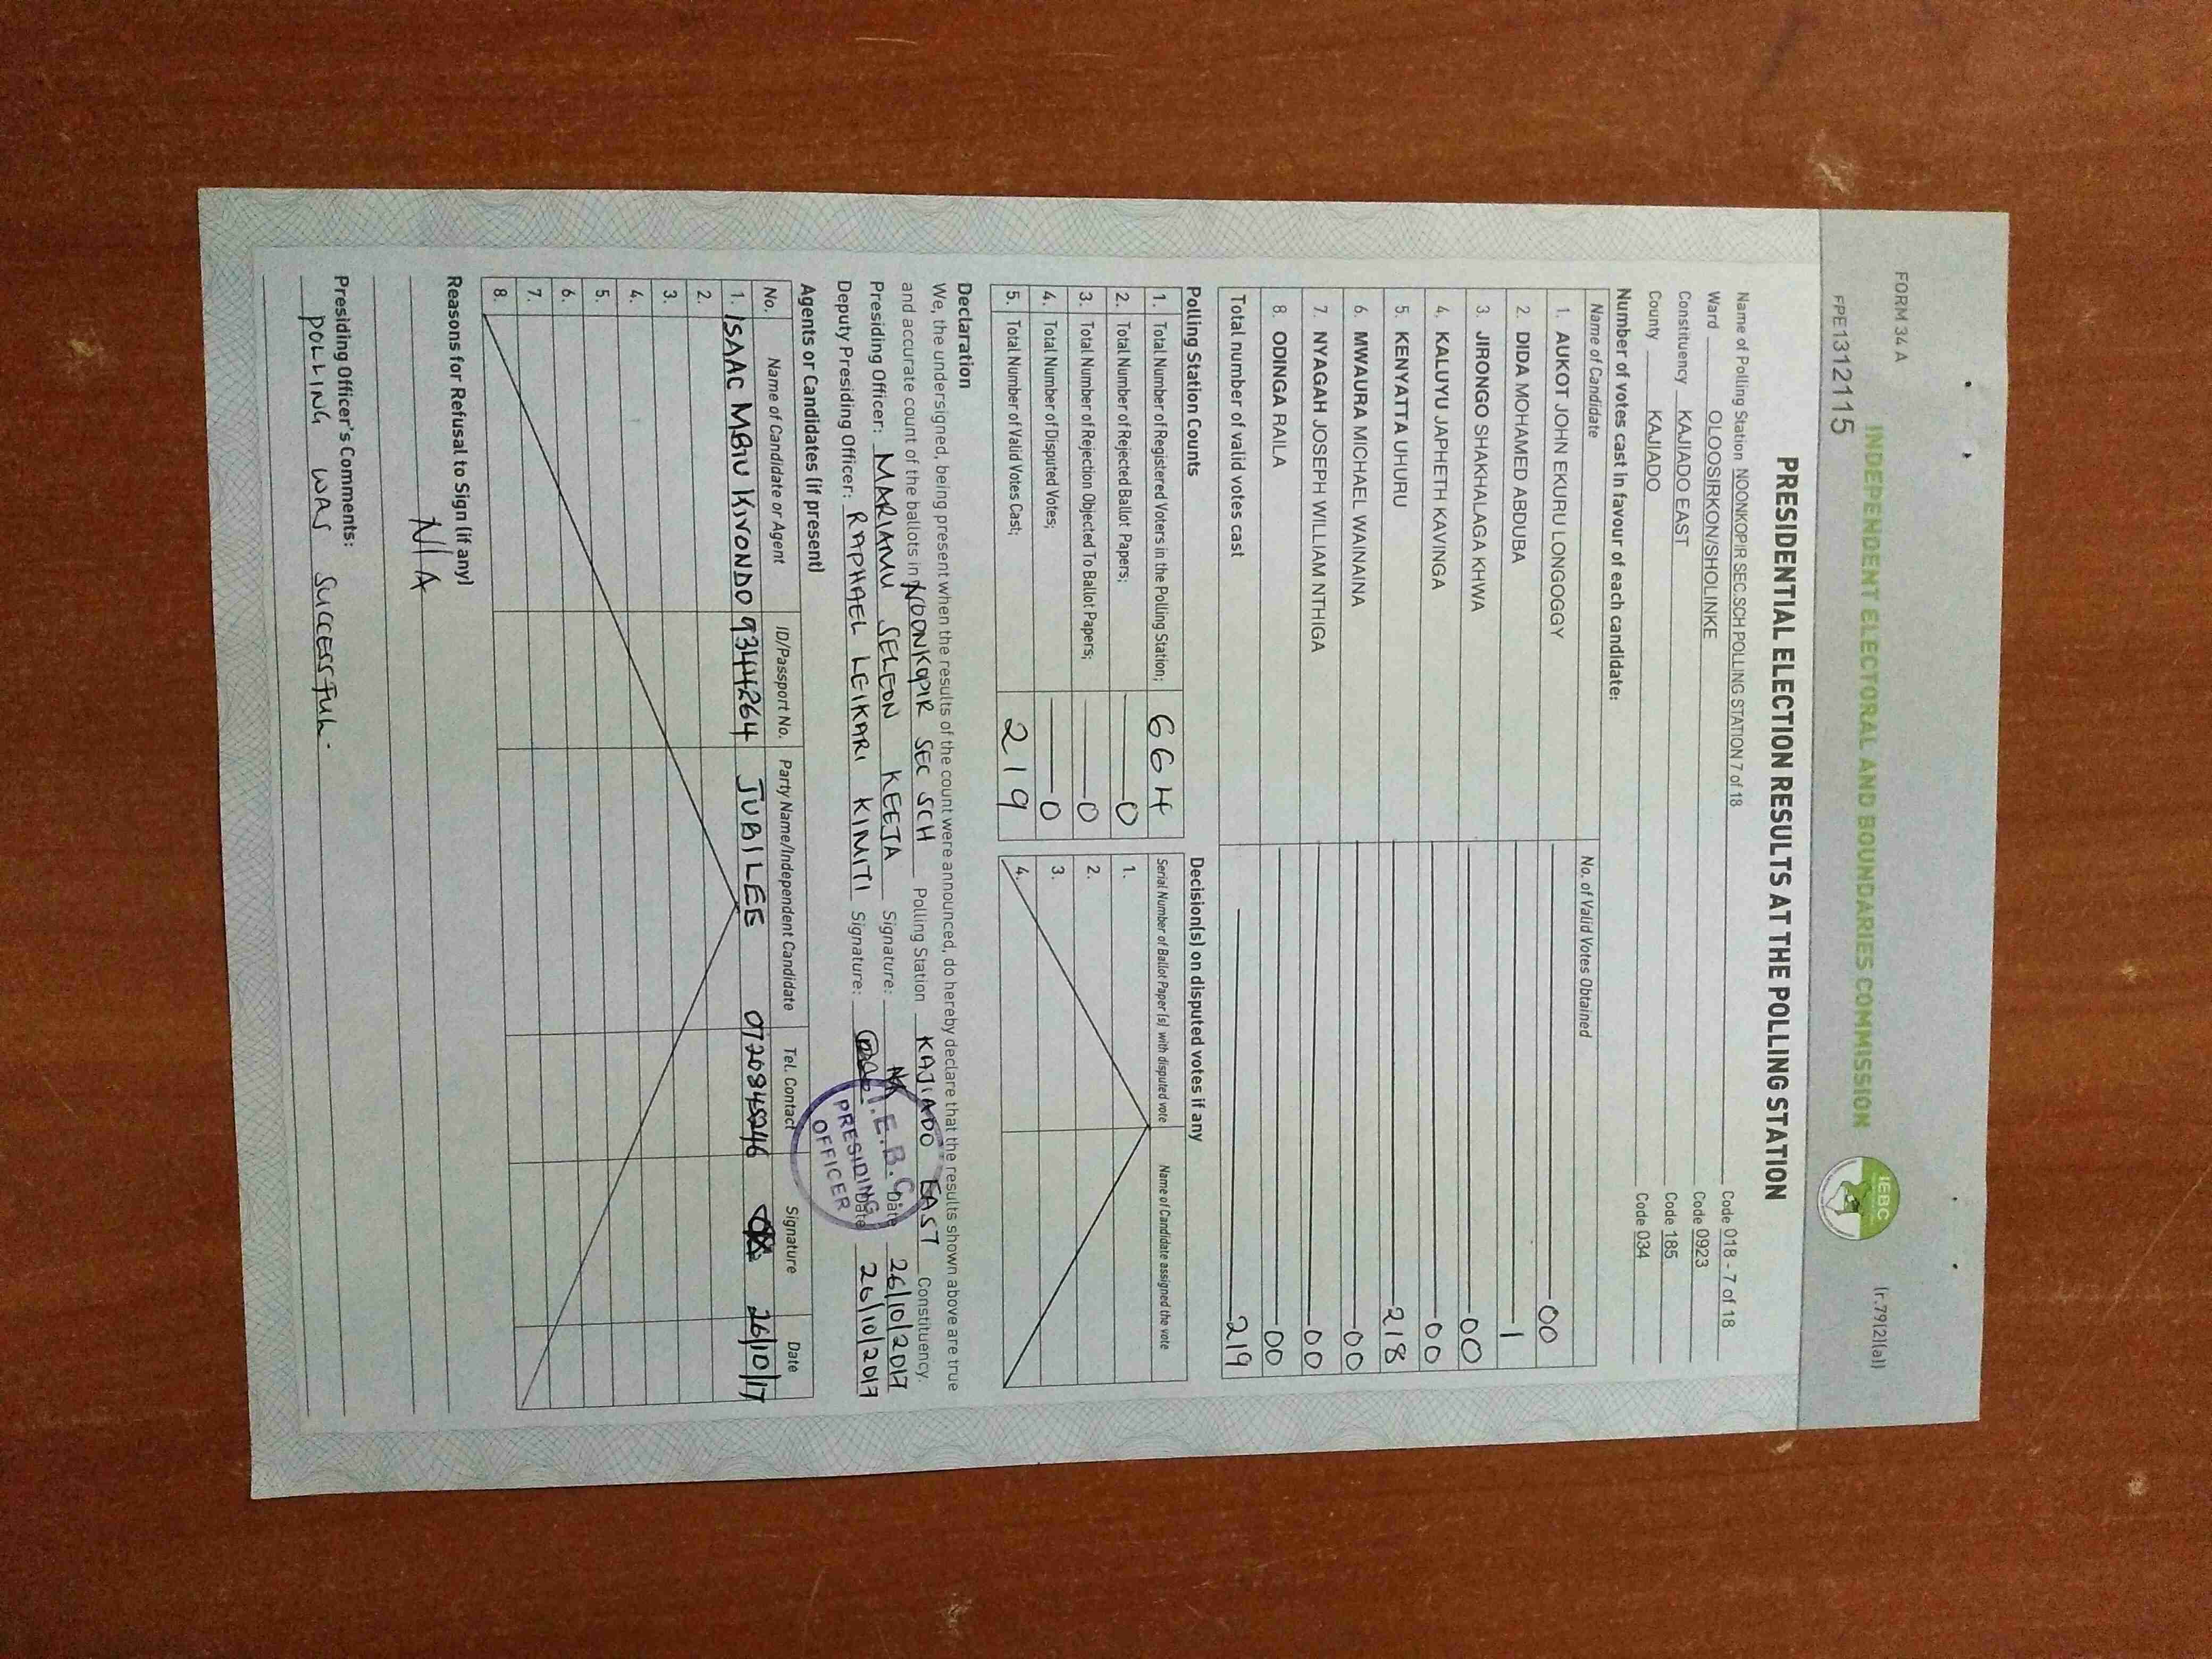 FORM 34 A
(r.79(2)(a))
INDEPENDENT ELECTORAL AND BOUNDARIES COMMISSION
IEBC
FPE1312115
PRESIDENTIAL ELECTION RESULTS AT THE POLLING STATION
Name of Polling Station NOONKOPIR SEC.SCH POLLING STATION 7 of 18 Code 018 - 7 of 18
Ward OLOOSIRKON/SHOLINKE Code 0923
Constituency KAJIADO EAST Code 185
County KAJIADO Code 034
Number of votes cast in favour of each candidate:
Name of Candidate No. of Valid Votes Obtained
1. AUKOT JOHN EKURU LONGOGGY 00
2. DIDA MOHAMED ABDUBA 1
3. JIRONGO SHAKHALAGA KHWA 00
4. KALUYU JAPHETH KAVINGA 00
5. KENYATTA UHURU 218
6. MWAURA MICHAEL WAINAINA 00
7. NYAGAH JOSEPH WILLIAM NTHIGA 00
8. ODINGA RAILA 00
Total number of valid votes cast 219
Polling Station Counts
1. Total Number of Registered Voters in the Polling Station; 664
2. Total Number of Rejected Ballot Papers; 0
3. Total Number of Rejection Objected To Ballot Papers; 0
4. Total Number of Disputed Votes; 0
5. Total Number of Valid Votes Cast; 219
Decision(s) on disputed votes if any
Serial Number of Ballot Paper(s) with disputed vote Name of Candidate assigned the vote
1.
2.
3.
4.
Declaration
We, the undersigned, being present when the results of the count were announced, do hereby declare that the results shown above are true
and accurate count of the ballots in NOONKOPIR SEC SCH Polling Station KAJIADO EAST Constituency.
Presiding Officer: MARIAMU SELEON KEETA Signature: Date 26/10/2017
Deputy Presiding Officer: RAPHAEL LEIKARI KIMITI Signature: Date 26/10/2017
I.E.B.C
PRESIDING
OFFICER
Agents or Candidates (if present)
No. Name of Candidate or Agent ID/Passport No. Party Name/Independent Candidate Tel. Contact Signature Date
1. ISAAC MBIU KIVONDO 9344264 JUBILEE 0720845246 26/10/17
2.
3.
4.
5.
6.
7.
8.
Reasons for Refusal to Sign (if any)
N/A
Presiding Officer's Comments:
POLLING WAS SUCCESSFUL.